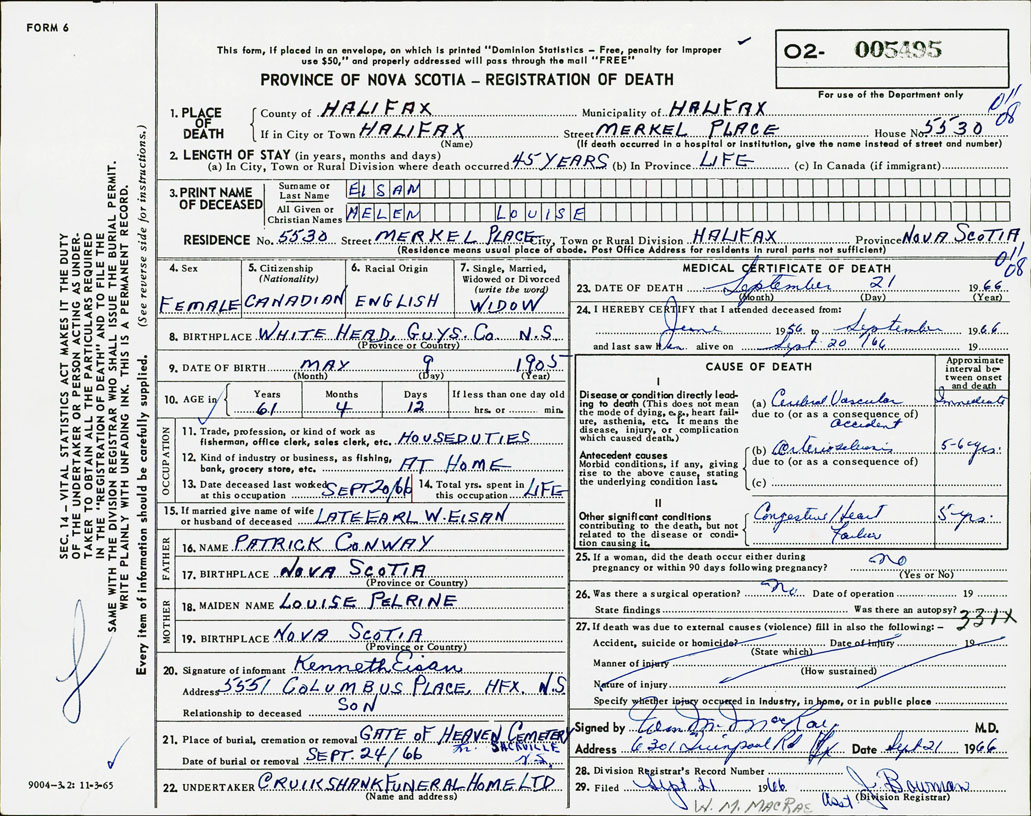 FORM 6
This form, if placed in an envelope, on which is printed "Dominion Statistics – Free, penalty for improper
use $50," and properly addressed will pass through the mail "FREE"
PROVINCE OF NOVA SCOTIA – REGISTRATION OF DEATH
O2- 005495
For use of the Department only
011
08
1. PLACE OF DEATH
County of HALIFAX Municipality of HALIFAX
If in City or Town HALIFAX Street MERKEL PLACE House No. 5530
(Name) (If death occurred in a hospital or institution, give the name instead of street and number)
2. LENGTH OF STAY (in years, months and days)
(a) In City, Town or Rural Division where death occurred 45 YEARS (b) In Province LIFE (c) In Canada (if immigrant)
3. PRINT NAME OF DECEASED
Surname or Last Name EISAN
All Given or Christian Names HELEN LOUISE
RESIDENCE No. 5530 Street MERKEL PLACE City, Town or Rural Division HALIFAX Province NOVA SCOTIA
(Residence means usual place of abode. Post Office Address for residents in rural parts not sufficient)
011
08
4. Sex
FEMALE
5. Citizenship
(Nationality)
CANADIAN
6. Racial Origin
ENGLISH
7. Single, Married,
Widowed or Divorced
(write the word)
WIDOW
8. BIRTHPLACE WHITE HEAD, GUYS. CO. N.S.
(Province or Country)
9. DATE OF BIRTH MAY 9 1905
(Month) (Day) (Year)
10. AGE in Years Months Days If less than one day old
61 4 12 hrs. or min.
OCCUPATION
11. Trade, profession, or kind of work as
fisherman, office clerk, sales clerk, etc. HOUSEDUTIES
12. Kind of industry or business, as fishing,
bank, grocery store, etc. AT HOME
13. Date deceased last worked
at this occupation SEPT 20/66
14. Total yrs. spent in
this occupation LIFE
15. If married give name of wife
or husband of deceased LATE EARL W. EISAN
FATHER
16. NAME PATRICK CONWAY
17. BIRTHPLACE NOVA SCOTIA
(Province or Country)
MOTHER
18. MAIDEN NAME LOUISE PELRINE
19. BIRTHPLACE NOVA SCOTIA
(Province or Country)
20. Signature of informant Kenneth Eisan
Address 5551 COLUMBUS PLACE, HFX. N.S
Relationship to deceased SON
21. Place of burial, cremation or removal GATE OF HEAVEN CEMETERY
SACKVILLE
N.S.
Date of burial or removal SEPT. 24/66
22. UNDERTAKER CRUIKSHANK FUNERAL HOME LTD
(Name and address)
MEDICAL CERTIFICATE OF DEATH
23. DATE OF DEATH September 21 1966
(Month) (Day) (Year)
24. I HEREBY CERTIFY that I attended deceased from:
June 1956 to September 1966
and last saw her alive on Sept 20/66 19
CAUSE OF DEATH
Approximate
interval be-
tween onset
and death
I
Disease or condition directly lead-
ing to death (This does not mean
the mode of dying, e.g., heart fail-
ure, asthenia, etc. It means the
disease, injury, or complication
which caused death.)
(a) Cerebral Vascular Immediate
due to (or as a consequence of)
accident
Antecedent causes
Morbid conditions, if any, giving
rise to the above cause, stating
the underlying condition last.
(b) Arteriosclerosis 5-6 yrs.
due to (or as a consequence of)
(c)
II
Other significant conditions
contributing to the death, but not
related to the disease or condi-
tion causing it.
Congestive Heart 5-yrs.
Failure
25. If a woman, did the death occur either during
pregnancy or within 90 days following pregnancy? No
(Yes or No)
26. Was there a surgical operation? No Date of operation 19
State findings Was there an autopsy?
331X
27. If death was due to external causes (violence) fill in also the following: –
Accident, suicide or homicide? Date of injury 19
(State which)
Manner of injury (How sustained)
Nature of injury
Specify whether injury occurred in industry, in home, or in public place
Signed by Wm M. MacRae M.D.
Address 6301 Quinpool Rd Hfx Date Sept 21 1966
28. Division Registrar's Record Number
29. Filed Sept 21 1966 Asst. J. Bowman
(Division Registrar)
W. M. MACRAE
SEC. 14 – VITAL STATISTICS ACT MAKES IT THE DUTY
OF THE UNDERTAKER OR PERSON ACTING AS UNDER-
TAKER TO OBTAIN ALL THE PARTICULARS REQUIRED
IN THE "REGISTRATION OF DEATH" AND TO FILE THE
SAME WITH THE DIVISION REGISTRAR WHO SHALL ISSUE THE BURIAL PERMIT.
WRITE PLAINLY WITH UNFADING INK. THIS IS A PERMANENT RECORD.
Every item of information should be carefully supplied. (See reverse side for instructions.)
9004-3.2: 11-3-65